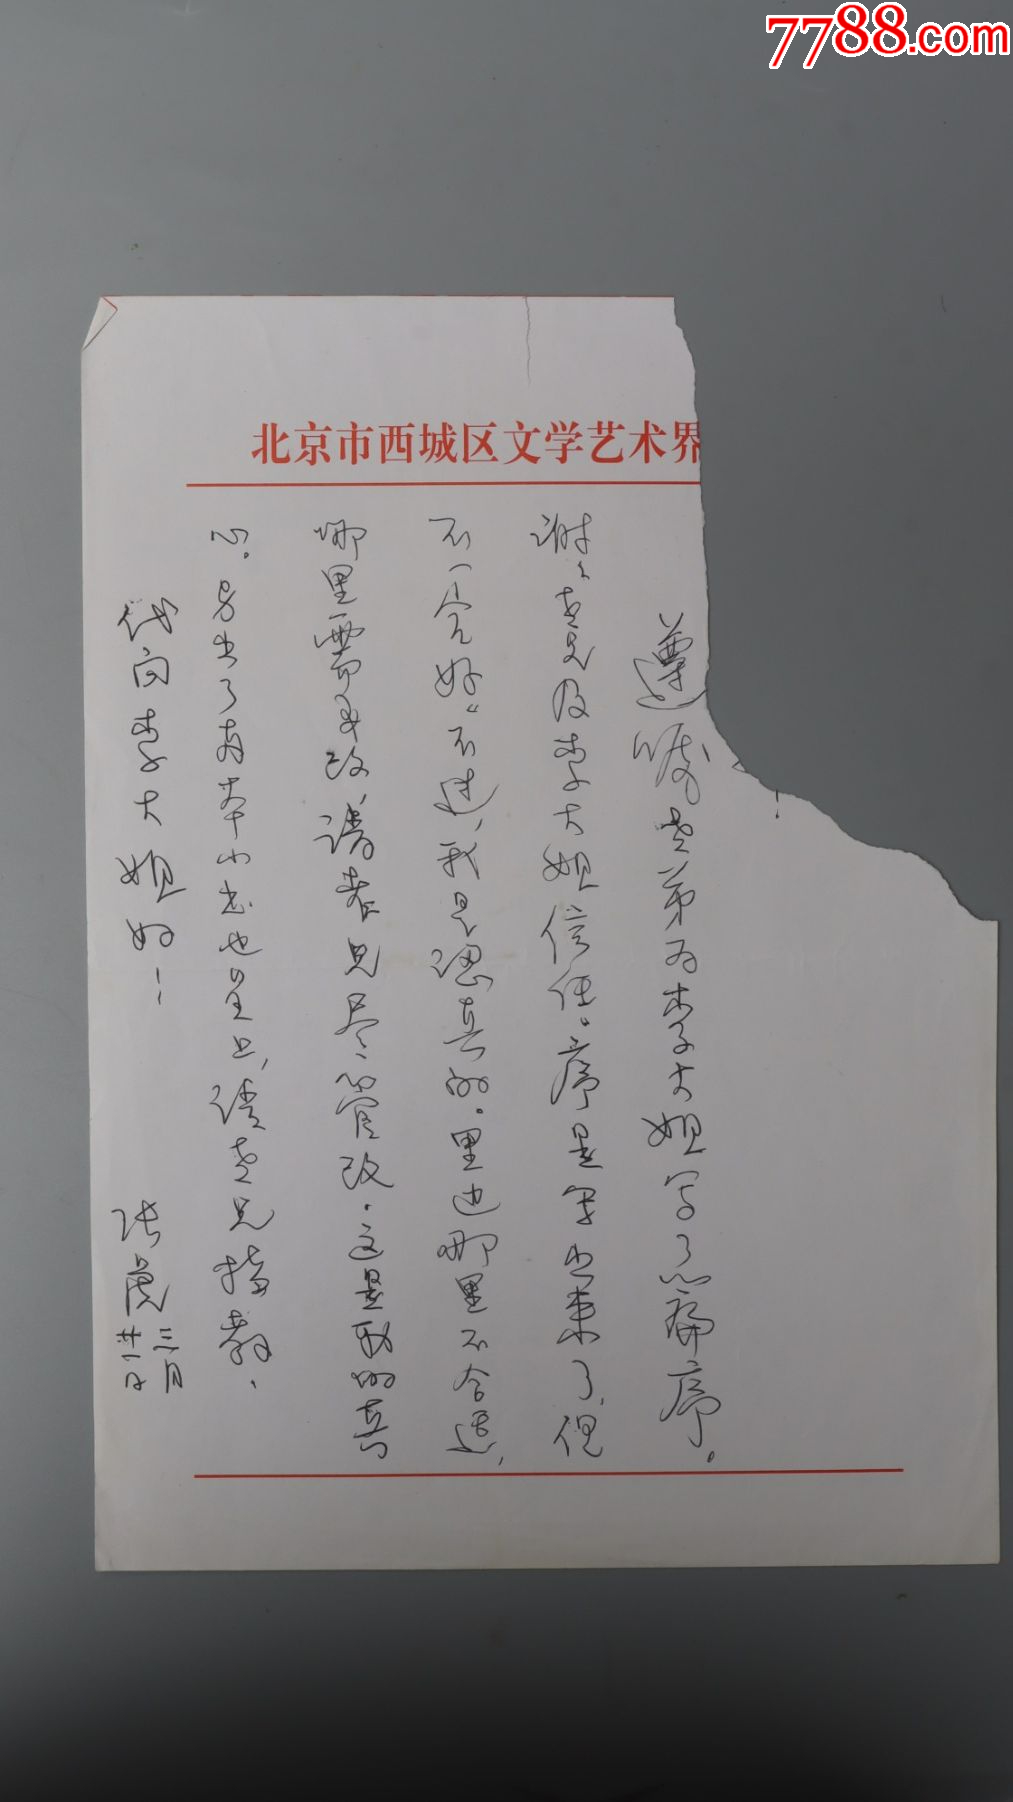 7788.com
北京市西城区文学艺术界
遵嘱老弟为李大姐写了篇序。
谢谢老兄及李大姐信任。序是写出来了，但
不一定好。不过，我是认真的。里边哪里不合适，
哪里需要改，请老兄尽管改。这是我的真
心。另出了两本小书也呈上，请老兄指教。
代向李大姐好！
张